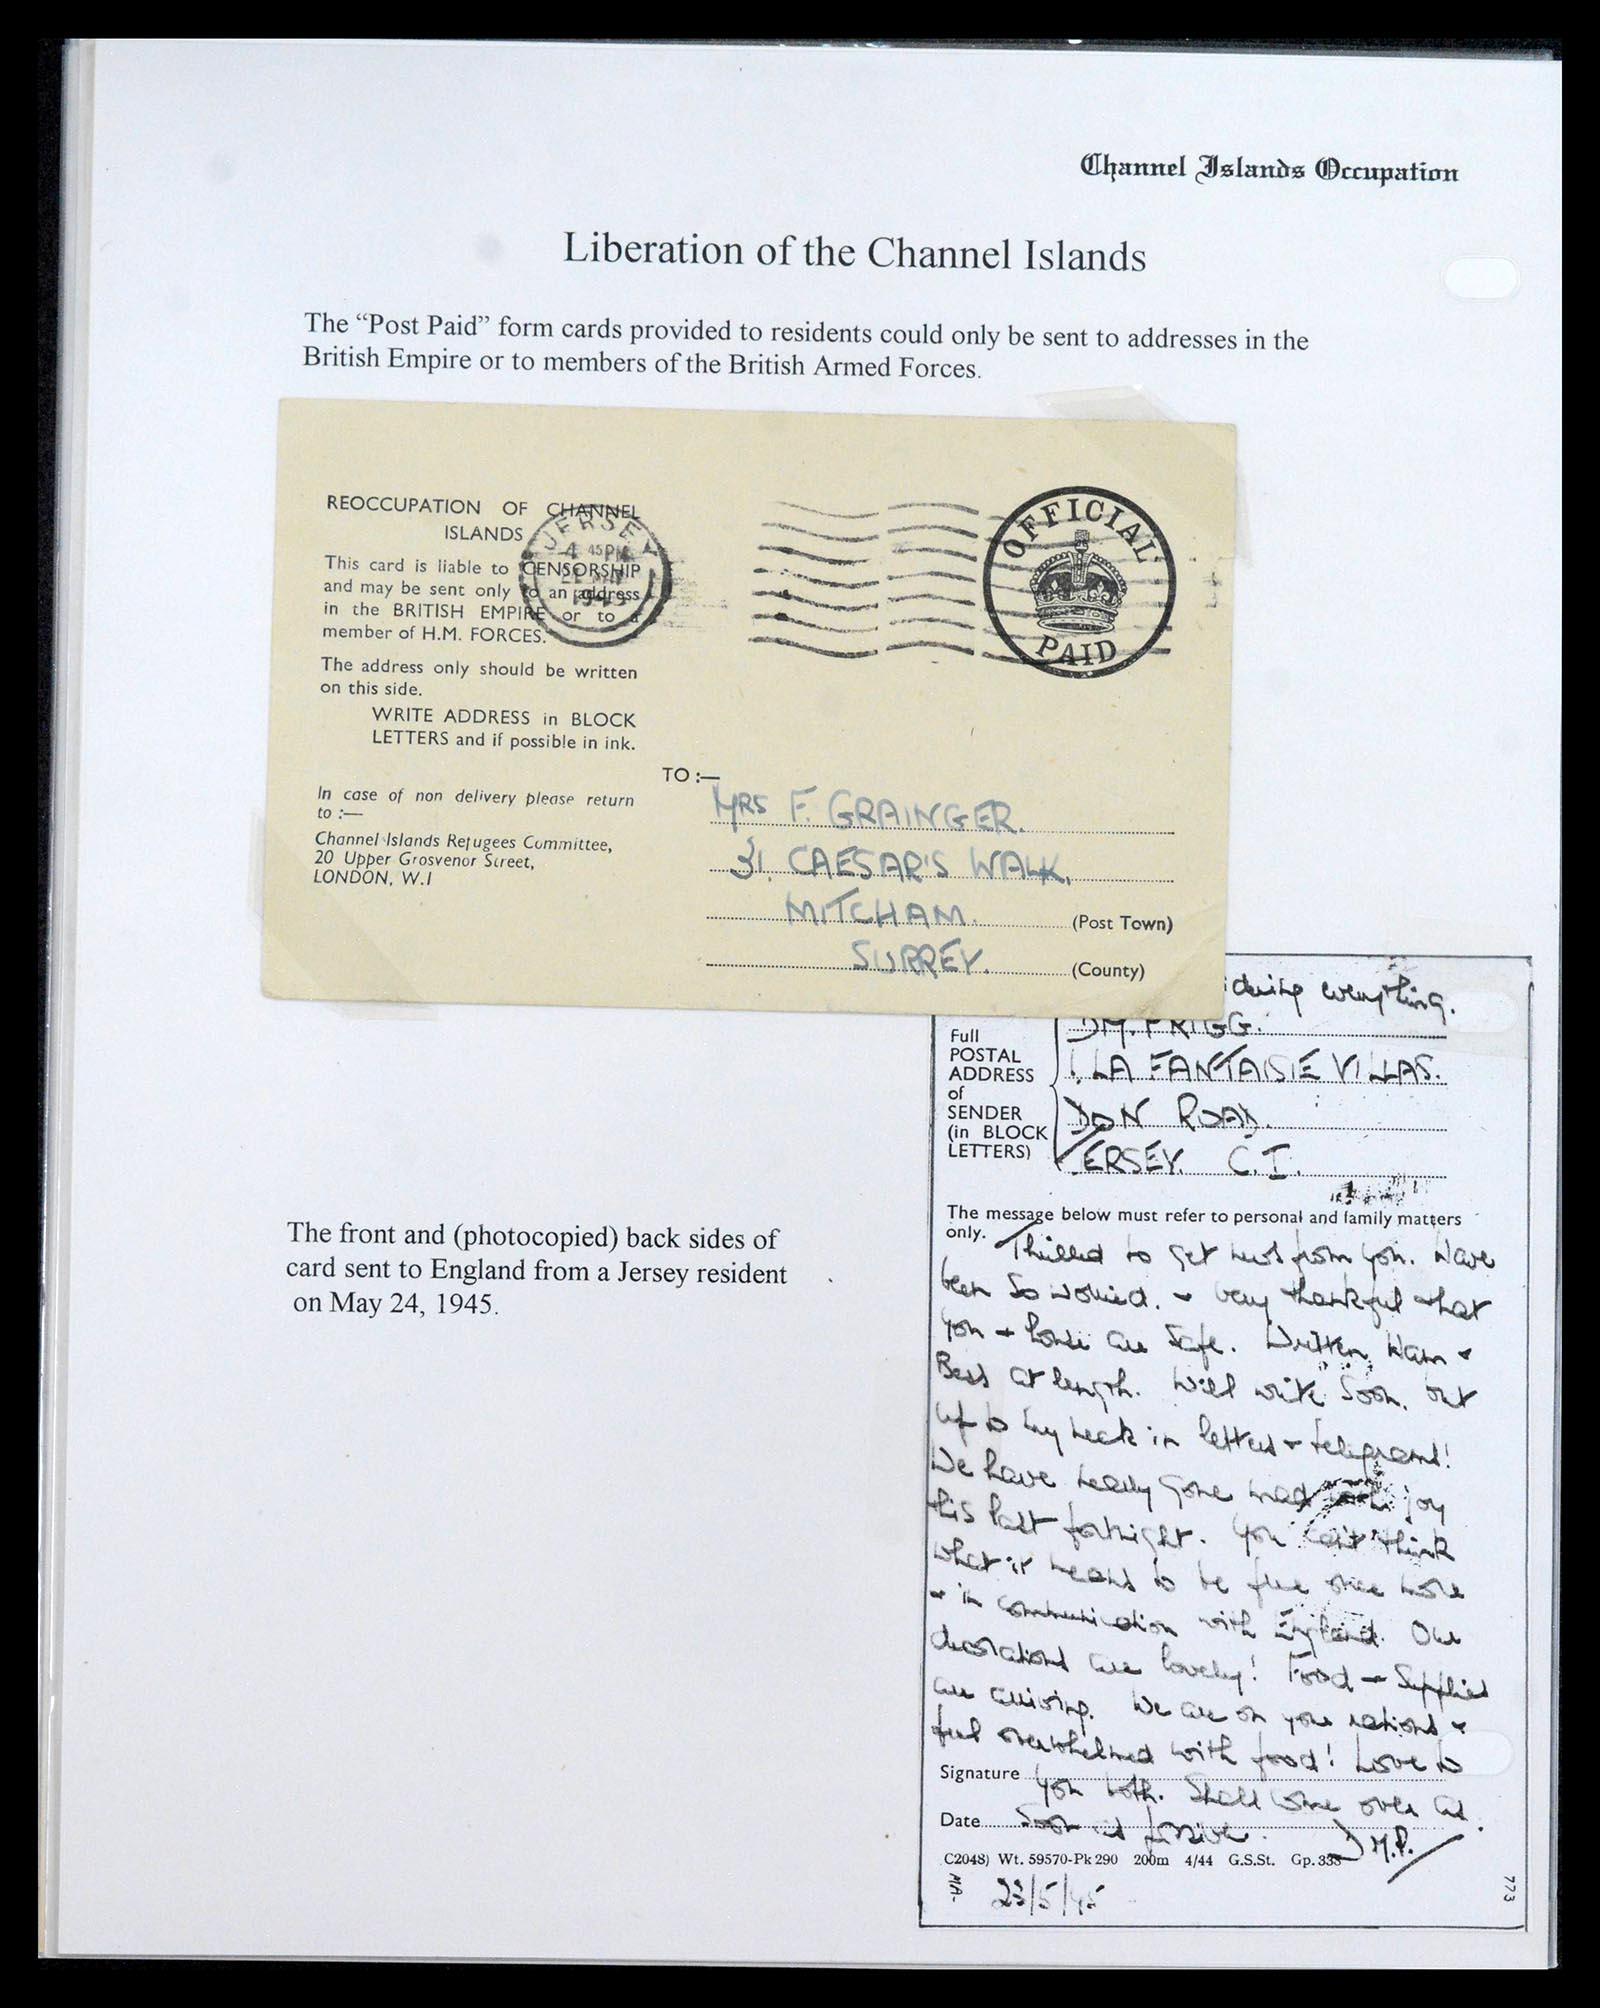 Channel Islands Occupation
Liberation of the Channel Islands
The “Post Paid” form cards provided to residents could only be sent to addresses in the
British Empire or to members of the British Armed Forces.
REOCCUPATION OF CHANNEL
ISLANDS
This card is liable to CENSORSHIP
and may be sent only to an address
in the BRITISH EMPIRE or to a
member of H.M. FORCES.
The address only should be written
on this side.
WRITE ADDRESS in BLOCK
LETTERS and if possible in ink.
In case of non delivery please return
to :—
Channel Islands Refugees Committee,
20 Upper Grosvenor Street,
LONDON, W.1
JERSEY
4 45 PM
1945
OFFICIAL
PAID
TO :—
MRS F. GRAINGER.
31, CAESAR'S WALK,
MITCHAM. (Post Town)
SURREY. (County)
everything.
Full
POSTAL
ADDRESS
of
SENDER
(in BLOCK
LETTERS)
D.M. PRIGG.
1, LA FANTAISIE VILLAS.
DON ROAD.
JERSEY. C.I.
The message below must refer to personal and family matters
only. Thrilled to get news from you. Have
been so worried. + very thankful that
you + house are safe. Written Mam +
Bess at length. Will write soon. but
up to my neck in letters + telegrams!
We have really gone mad with joy
this last fortnight. You can't think
what it means to be free once more
+ in communication with England. Our
decorations are lovely! Food + supplies
are arriving. We are on your rations +
feel overwhelmed with food! Love to
Signature you both. Shall come over as
Date soon as possible. D.M.P.
C2048) Wt. 59570-Pk 290 200m 4/44 G.S.St. Gp. 338
23/5/45
773
The front and (photocopied) back sides of
card sent to England from a Jersey resident
on May 24, 1945.